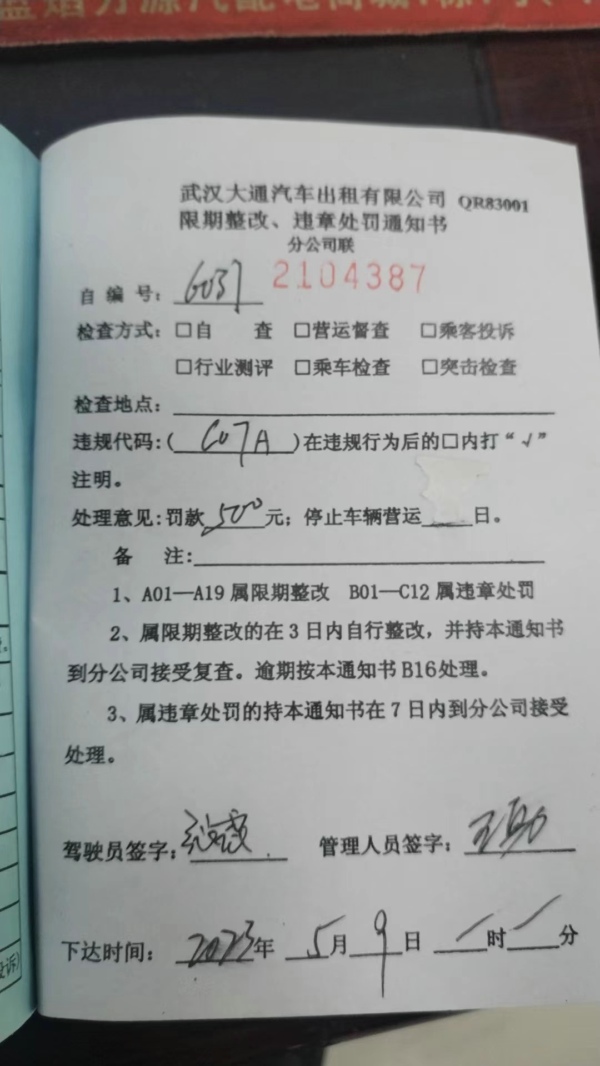 武汉大通汽车出租有限公司 QR83001
限期整改、违章处罚通知书
分公司联
自编号: G037 2104387
检查方式: □自 查 □营运督查 □乘客投诉
□行业测评 □乘车检查 □突击检查
检查地点:
违规代码:( C07A )在违规行为后的□内打“√”
注明。
处理意见:罚款 500 元；停止车辆营运 日。
备 注:
1、A01—A19 属限期整改 B01—C12 属违章处罚
2、属限期整改的在 3 日内自行整改，并持本通知书
到分公司接受复查。逾期按本通知书 B16 处理。
3、属违章处罚的持本通知书在 7 日内到分公司接受
处理。
驾驶员签字: 管理人员签字:
下达时间: 2023 年 5 月 9 日 时 分